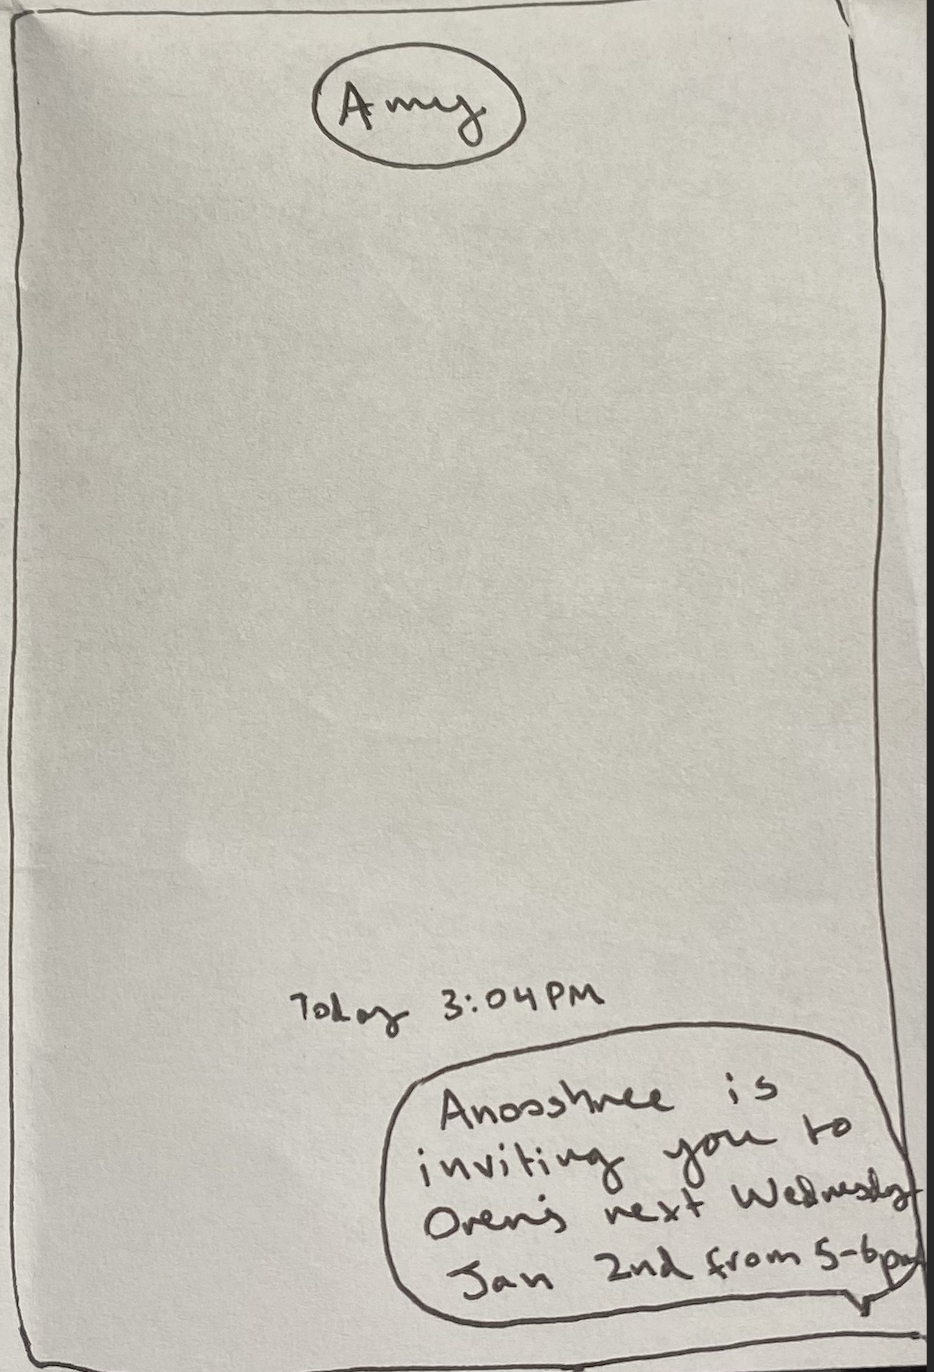 Amy
Today 3:04PM
Anooshree is
inviting you to
Oren's next Wednesday
Jan 2nd from 5-6pm